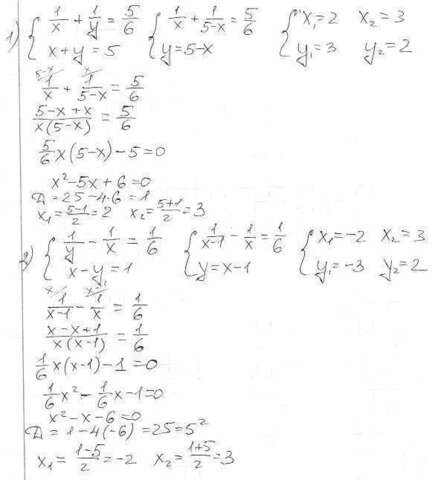 1) { 1/x + 1/y = 5/6 { 1/x + 1/(5-x) = 5/6 { x₁=2 x₂=3
x+y=5 y=5-x y₁=3 y₂=2
5-x x
1/x + 1/(5-x) = 5/6
(5-x+x)/(x(5-x)) = 5/6
5/6 x(5-x)-5=0
x²-5x+6=0
D=25-4·6=1
x₁=(5-1)/2=2 x₂=(5+1)/2=3
2) { 1/y - 1/x = 1/6 { 1/(x-1) - 1/x = 1/6 { x₁=-2 x₂=3
x-y=1 y=x-1 y₁=-3 y₂=2
x x-1
1/(x-1) - 1/x = 1/6
(x-x+1)/(x(x-1)) = 1/6
1/6 x(x-1)-1=0
1/6 x² - 1/6 x-1=0
x²-x-6=0
D=1-4(-6)=25=5²
x₁=(1-5)/2=-2 x₂=(1+5)/2=3